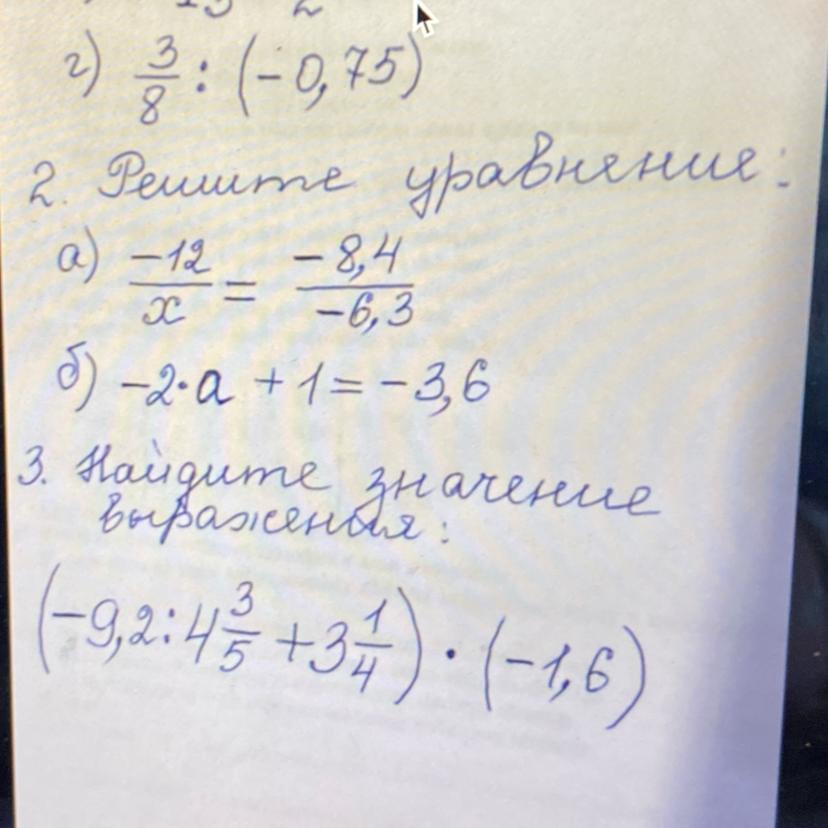 г) 3/8 : (-0,75)
2. Решите уравнения:
а) -12/x = -8,4/-6,3
б) -2·a + 1 = -3,6
3. Найдите значение
выражения:
(-9,2 : 4 3/5 + 3 1/4) · (-1,6)